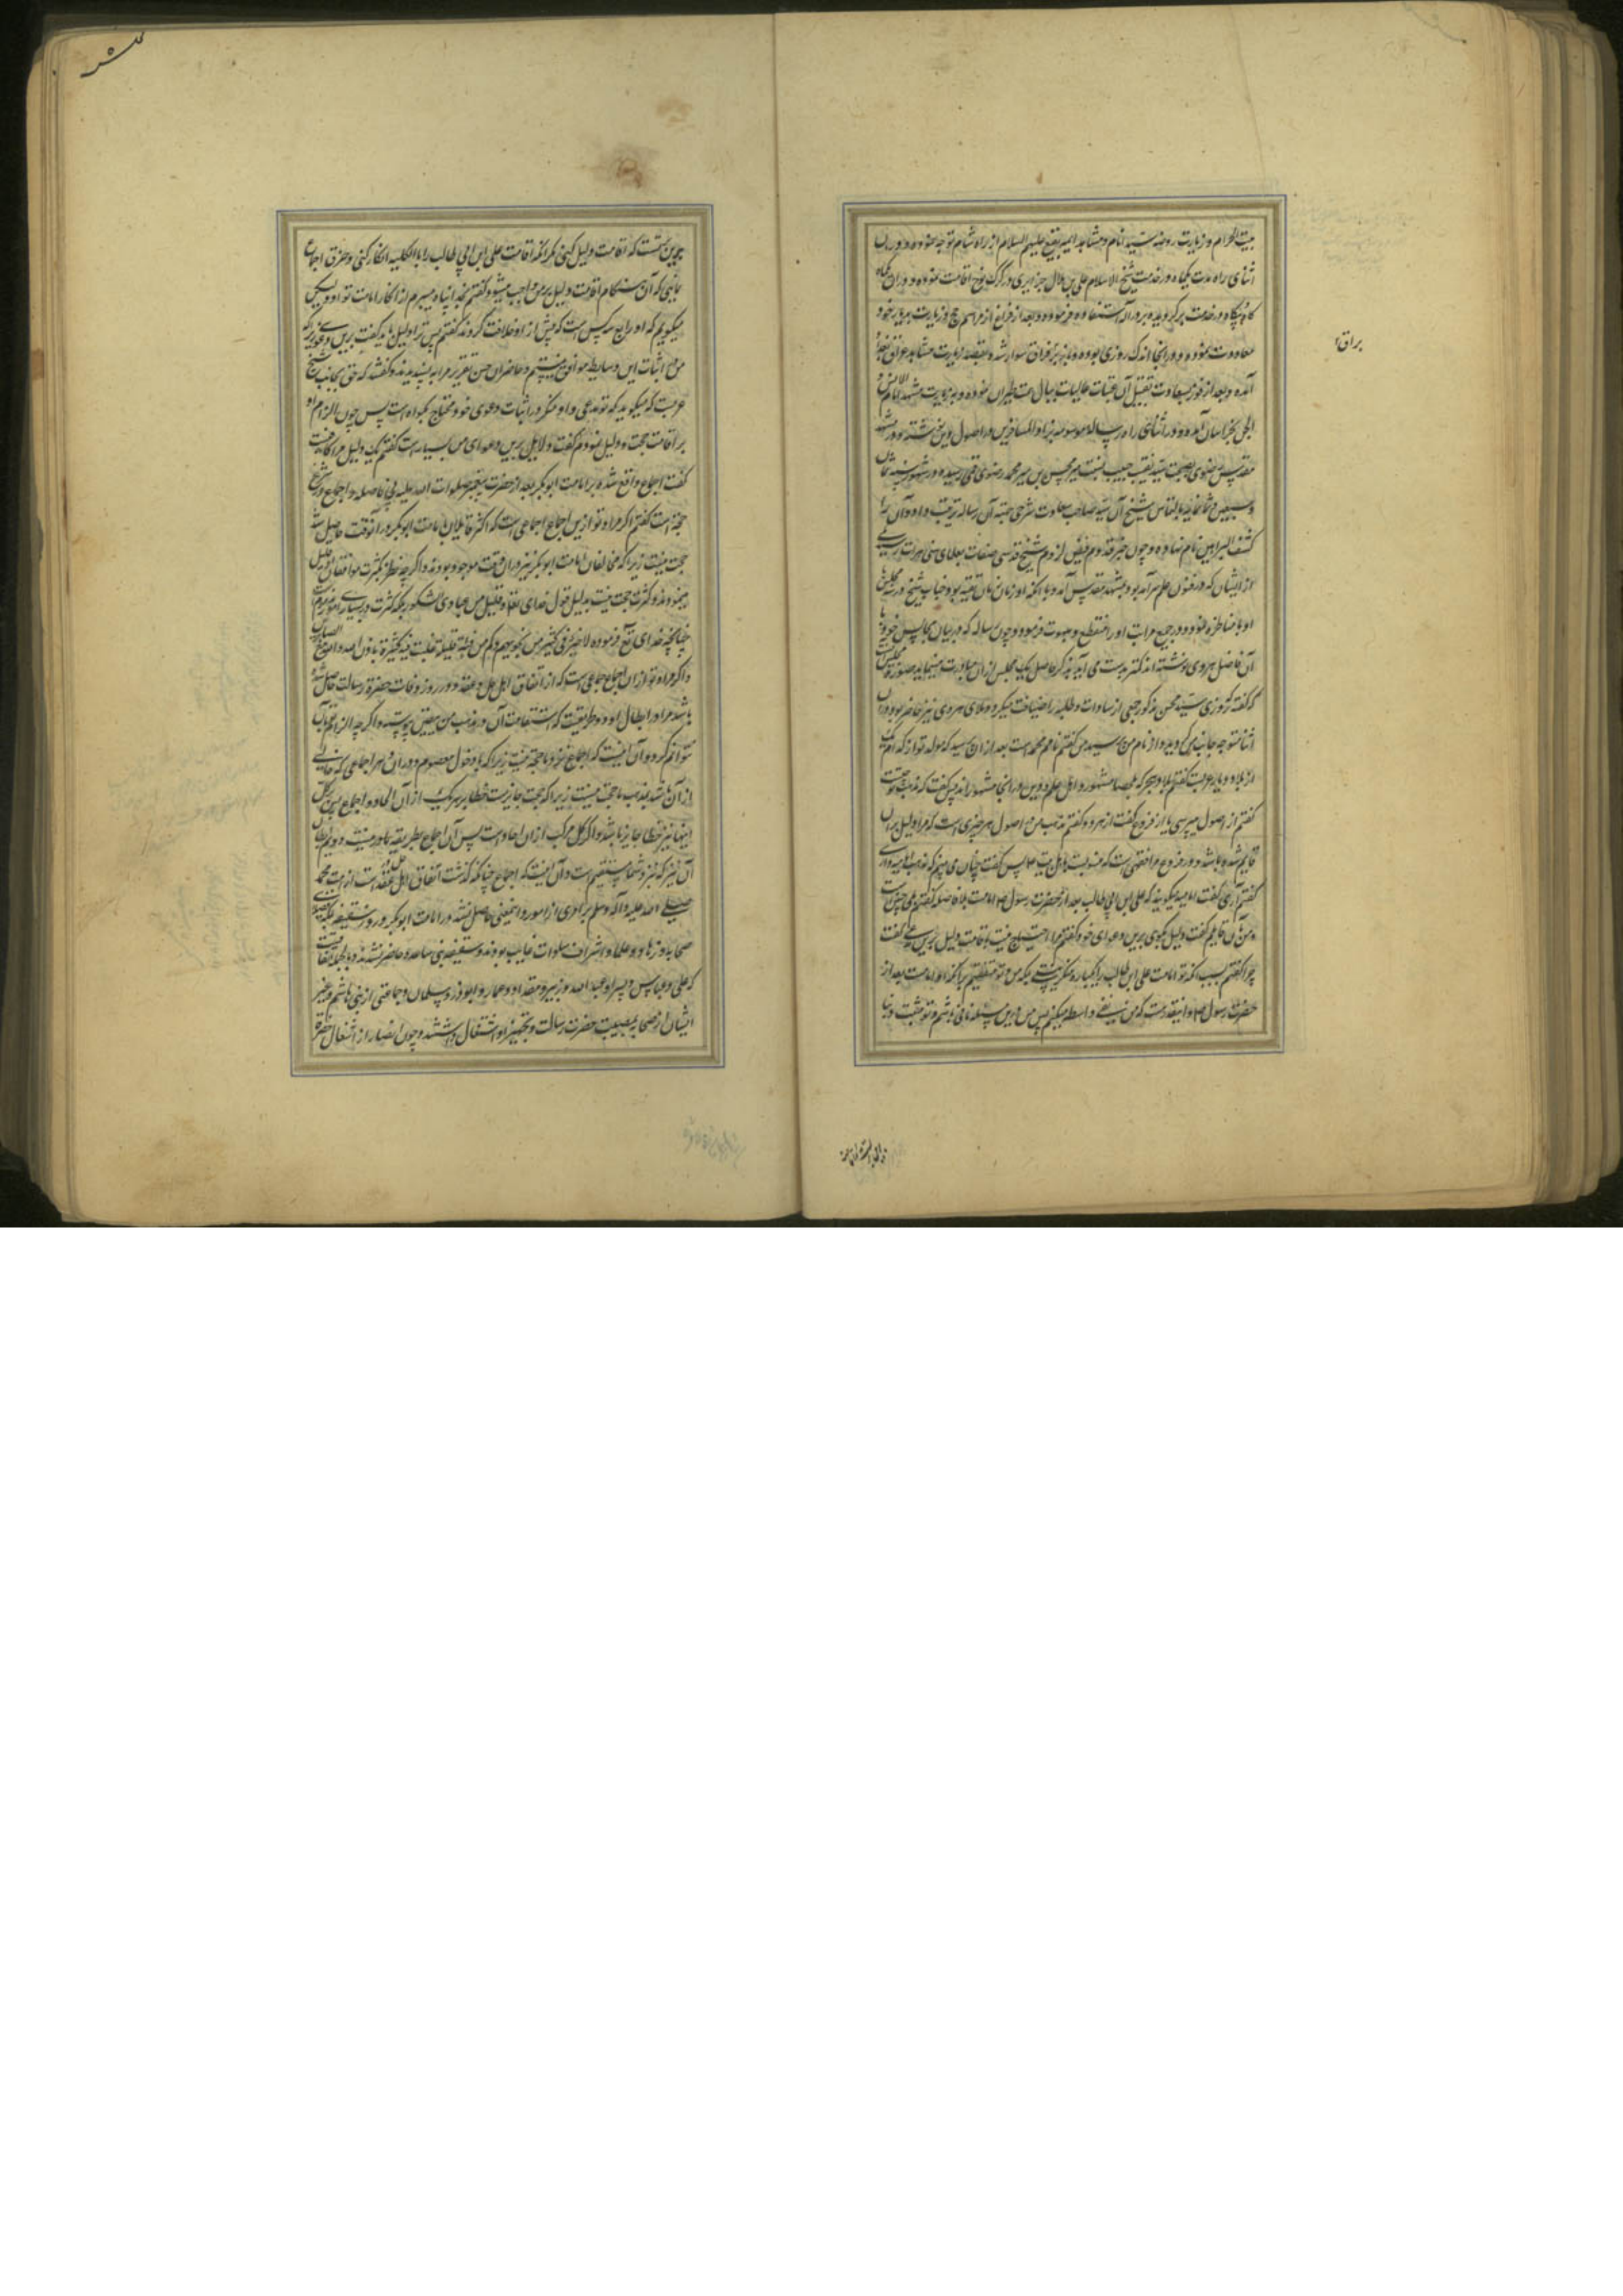 بیت الحرام و زیارت روضه سید انام و مشاهد ائمه بقیع علیهم السلام از راه شام توجه نموده و در
اثنای راه مدت یکماه در خدمت شیخ الاسلام علی بن هلال جزایری در کرک نوح اقامت نموده و در آن
در خدمت و بعد از فراغ از مراسم حج و زیارت بدیار خود
معاودت نموده و در انجا اندک روزی بوده و باز سوار شده بقصد زیارت مشاهد عراق
براق
آمده و بعد از فوز بسعادت تقبیل آن عتبات عالیات نموده و بزیارت مشهد امام الانس و
الجن بخراسان آمده و در اثنای راه رساله موسومه بزاد المسافرین در اصول دین نوشته و در مشهد
مقدس رضوی بصحبت سید نقیب حسیب میر محسن بن میر محمد رضوی قمی رسیده و در شهور سنه ثمان
و سبعین و ثمانمایه بالتماس شیخ آن سید صاحب سعادت شرحی جهة آن رساله ترتیب داد و آن را
کشف البراهین نام نهاده و چون خبر قدوم فیض لزوم شیخ قدسی صفات بعلمای سنی هرات رسید یکی
از ایشان که در فنون علم سرآمد بود بمشهد مقدس آمد و با آنکه او زمان تقیه بود جناب شیخ در سه مجلس
او با مناظره نمود و در جمیع مراتب او را منقطع و مبهوت فرمود و چون رساله که در بیان مجالس خود با
آن فاضل هروی نوشته اند کمتر بدست می آید بذکر حاصل یک مجلس از آن مبادرت مینماید صورة مجلس
که گفته که روزی سید محسن مذکور جمعی از سادات و طلبه را ضیافت میکرد و ملای هروی نیز حاضر بود در آن
اثنا متوجه جانب من گردید و از نام من پرسید من گفتم نامم محمد است بعد از آن پرسید که مولد تو از کدام یک
از بلاد دیار عربست گفتم بلاد هجر که بلحصا مشهور و اهل علم و دین در انجا مشهوراند پس گفت که مذهب تو چیست
گفتم از اصول میپرسی یا از فروع گفت از هر دو گفتم مذهب من در اصول هر چیزی است که مرا دلیل بر آن
قایم شده باشد و در فروع مرا فقهی است که منسوبست باهل بیت پس گفت چنان می بینم که مذهب امامیه داری
گفتم آری گفت امامیه میگویند که علی ابن ابی طالب بعد از حضرت رسول امامست بلا فاصله گفتم بلی چنین است
و من بآن قایلم گفت دلیل بگوی برین دعوای خود گفتم مرا احتیاج نیست باقامت دلیل برین مدعی گفت
چرا گفتم بسبب آنکه تو امامت علی ابن طالب را یکبار منکر نیستی بلکه من و تو متفقیم بر آنکه او امامست بعد از
حضرت رسول اما اینقدر هست که من نفی واسطه میکنم پس من درین مسئله نافی باشم و تو مثبت
برین نیست که اقامت دلیل کنی مگر آنکه امامت علی ابن ابی طالب را بالکلیه انکار کنی و خرق اجماع
نمایی که آن هنگام اقامت دلیل بر من واجب میشود گفتم بخدا پناه میبرم از انکار امامت تو او ولیکن
میگویم که او رابع سه کس است که پیش از او خلافت کردند گفتم پس ترا دلیل باید گفت برین دعوی زیرا که
من در اثبات این وسایط موافق نیستم و حاضران حسن تقریر مرا پسندیدند و گفتند که حق بجانب شیخ
عربست که میگوید که تو مدعی و او منکر و در اثبات دعوی خود محتاج بگواه است پس چون الزام او
بر اقامت حجت و دلیل نمودم گفت دلایل برین دعوای من بسیار است گفتم یک دلیل مرا کافیست
گفت اجماع واقع شده بر امامت ابوبکر بعد از حضرت پیغمبر صلوات الله علیه بی فاصله و اجماع در شرع
حجة است گفتم اگر مراد تو ازین اجماع اجماعی است که اکثر قایلان بامامت ابوبکر در آنوقت حاصل شد
حجت نیست زیرا که مخالفان امامت ابوبکر نیز در ان وقت موجود بودند و اگر چه نظر بکثرت موافقان قلیل
مینمودند و کثرت حجت نیست بدلیل قول خدای تعالی و قلیل من عبادی الشکور بلکه کثرت در بسیاری امور مذموم است
چنانچه خدای تع فرموده لا خیر فی کثیر من نجویهم و کم من فئة قلیلة غلبت فئة کثیرة باذن الله و الله مع الصابرین
و اگر مراد تو از ان اجماع اجماعی است که از اتفاق اهل حل و عقد در روز وفات حضرة رسالت حاصل شده
باشد مرا در ابطال او دو طریقست که استقامت آن در مذهب من یقین پیوسته و اگر چه الزام تو بآن
نتوانم کرد و آن اینست که اجماع نزد ما حجة نیست زیرا که با دخول معصوم در ان و هر اجماعی که خالی
از آن باشد بمذهب ما حجت نیست زیرا که بحت جایزست خطا بر هر یک از آن احاد و اجماع پس بر کل
اینها نیز خطا جایز باشد و اگر کل مرکب از ان احاد است پس آن اجماع بطریقه ما درست نیست دویم ابطال
آن نیز که نزد شما مستقیم است و آن اینست که اجماع چنانکه گذشت اتفاق اهل حل و عقد است از امت محمد
صلی الله علیه و آله و سلم بر امری از امور و این معنی حاصل نشد در امامت ابوبکر در روز سقیفه بلکه فضلای
صحابه و زهاد و علما و اشراف غایب بودند و بسقیفه بنی ساعده حاضر نشدند و بالجمله اتفاق
که علی و عباس و پسر او عبد الله و زبیر و مقداد و عمار و ابوذر و سلمان و جماعتی از بنی هاشم و غیر
ایشان از صحابه بمصیبت حضرت رسالت و تجهیز او اشتغال داشتند و چون انصار از اشتغال حضرة